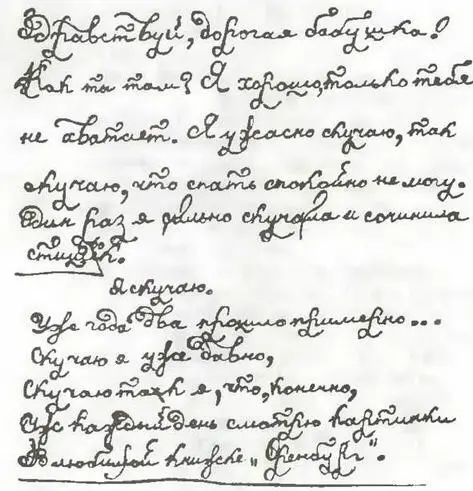 Здравствуй, дорогая бабушка!
Как ты там? Я хорошо, только тебя
не хватает. Я ужасно скучаю, так
скучаю, что спать спокойно не могу.
Один раз я сильно скучала и сочинила
стишок.
Я скучаю.
Уже года два прошло примерно...
Скучаю я уже давно,
Скучаю так я, что, конечно,
Уж каждый день смотрю картинки
В любимой книжке